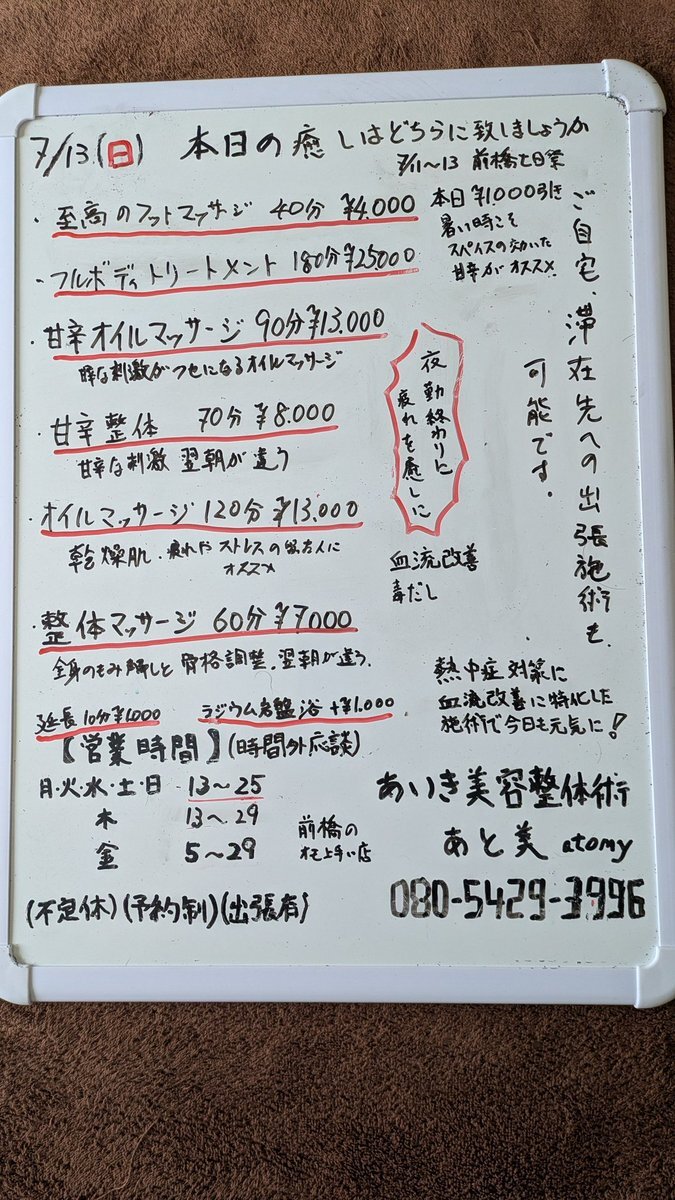 7/13(日) 本日の癒しはどちらに致しましょうか
7/11~13 前橋七日祭
・至高のフットマッサージ 40分 ¥4,000
本日¥1000引き
暑い時こそ
スパイスの効いた
甘辛がオススメ
・フルボディトリートメント 180分¥25,000
・甘辛オイルマッサージ 90分¥13,000
・甘辛整体 70分¥8,000
甘辛な刺激 翌朝が違う
・オイルマッサージ 120分¥13,000
乾燥肌・疲れやストレスの
オススメ
・整体マッサージ 60分¥7,000
全身のもみ解しと骨格調整。翌朝が違う。
延長10分¥1,000
ラジウム岩盤浴 +¥1,000
夜勤終わりに
疲れを癒しに
血流改善
毒だし
ご自宅、滞在先への出張施術も
可能です。
熱中症対策に
血流改善に特化した
施術で今日も元気に!
【営業時間】(時間外応談)
月・火・水・土・日 13~25
木 13~29
金 5~29
前橋の
店
(不定休)(予約制)(出張有)
あいき美容整体術
あと美 atomy
080-5429-3996